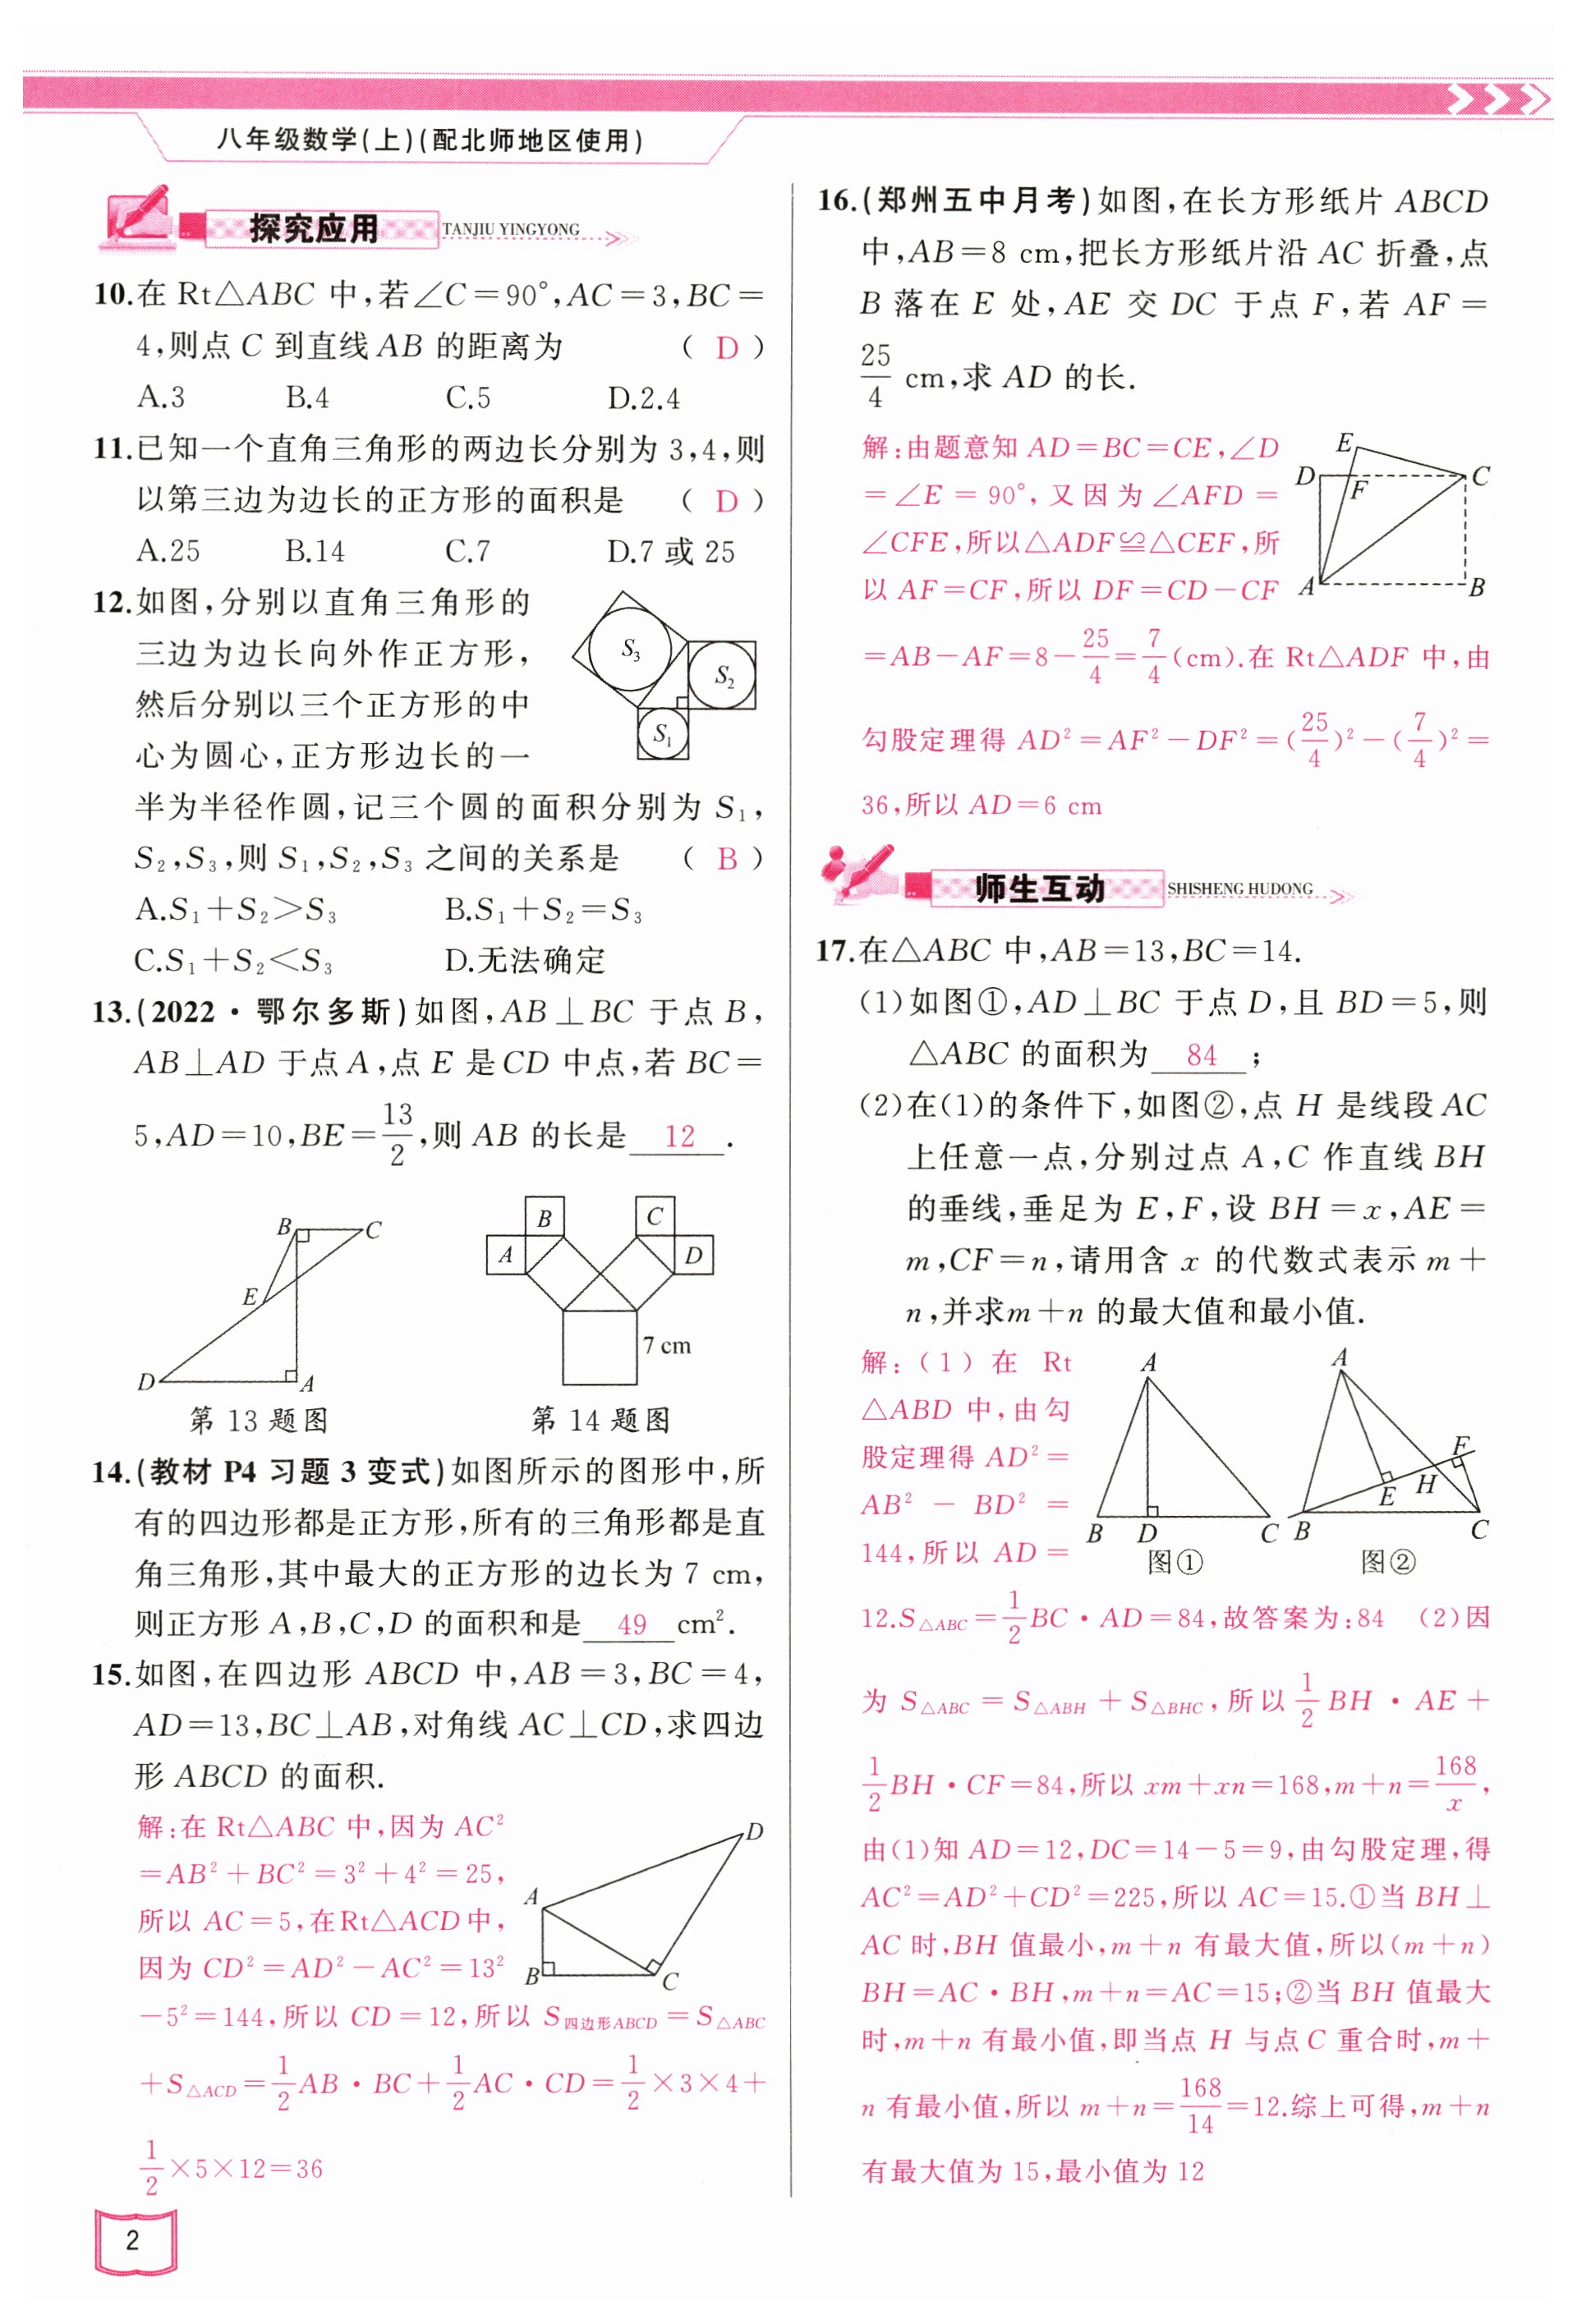 八年级数学(上)(配北师地区使用)
探究应用 TANJIU YINGYONG
10.在 Rt△ABC 中,若∠C=90°,AC=3,BC=
4,则点 C 到直线 AB 的距离为 ( D )
A.3 B.4 C.5 D.2.4
11.已知一个直角三角形的两边长分别为 3,4,则
以第三边为边长的正方形的面积是 ( D )
A.25 B.14 C.7 D.7 或 25
12.如图,分别以直角三角形的
三边为边长向外作正方形,
然后分别以三个正方形的中
心为圆心,正方形边长的一
半为半径作圆,记三个圆的面积分别为 S₁,
S₂,S₃,则 S₁,S₂,S₃ 之间的关系是 ( B )
S₃
S₂
S₁
A.S₁+S₂>S₃ B.S₁+S₂=S₃
C.S₁+S₂<S₃ D.无法确定
13.(2022·鄂尔多斯)如图,AB⊥BC 于点 B,
AB⊥AD 于点 A,点 E 是 CD 中点,若 BC=
5,AD=10,BE=13/2,则 AB 的长是 12 .
B C
E
D A
第 13 题图
B C
A D
7 cm
第 14 题图
14.(教材 P4 习题 3 变式)如图所示的图形中,所
有的四边形都是正方形,所有的三角形都是直
角三角形,其中最大的正方形的边长为 7 cm,
则正方形 A,B,C,D 的面积和是 49 cm².
15.如图,在四边形 ABCD 中,AB=3,BC=4,
AD=13,BC⊥AB,对角线 AC⊥CD,求四边
形 ABCD 的面积.
解:在 Rt△ABC 中,因为 AC²
=AB²+BC²=3²+4²=25,
所以 AC=5,在Rt△ACD中,
因为 CD²=AD²-AC²=13²
-5²=144,所以 CD=12,所以 S四边形ABCD=S△ABC
+S△ACD=1/2AB·BC+1/2AC·CD=1/2×3×4+
1/2×5×12=36
D
A
B C
2
16.(郑州五中月考)如图,在长方形纸片 ABCD
中,AB=8 cm,把长方形纸片沿 AC 折叠,点
B 落在 E 处,AE 交 DC 于点 F,若 AF=
25/4 cm,求 AD 的长.
解:由题意知 AD=BC=CE,∠D
=∠E=90°,又因为∠AFD=
∠CFE,所以△ADF≌△CEF,所
以 AF=CF,所以 DF=CD-CF
=AB-AF=8-25/4=7/4(cm).在 Rt△ADF 中,由
勾股定理得 AD²=AF²-DF²=(25/4)²-(7/4)²=
36,所以 AD=6 cm
E
D F C
A B
师生互动 SHISHENG HUDONG
17.在△ABC 中,AB=13,BC=14.
(1)如图①,AD⊥BC 于点 D,且 BD=5,则
△ABC 的面积为 84 ;
(2)在(1)的条件下,如图②,点 H 是线段 AC
上任意一点,分别过点 A,C 作直线 BH
的垂线,垂足为 E,F,设 BH=x,AE=
m,CF=n,请用含 x 的代数式表示 m+
n,并求m+n 的最大值和最小值.
解:(1)在 Rt
△ABD 中,由勾
股定理得 AD²=
AB²-BD²=
144,所以 AD=
A
B D C
图①
A
F
E H
B C
图②
12.S△ABC=1/2BC·AD=84,故答案为:84 (2)因
为 S△ABC=S△ABH+S△BHC,所以1/2BH·AE+
1/2BH·CF=84,所以 xm+xn=168,m+n=168/x,
由(1)知 AD=12,DC=14-5=9,由勾股定理,得
AC²=AD²+CD²=225,所以 AC=15.①当 BH⊥
AC 时,BH 值最小,m+n 有最大值,所以(m+n)
BH=AC·BH,m+n=AC=15;②当 BH 值最大
时,m+n 有最小值,即当点 H 与点 C 重合时,m+
n 有最小值,所以 m+n=168/14=12.综上可得,m+n
有最大值为 15,最小值为 12